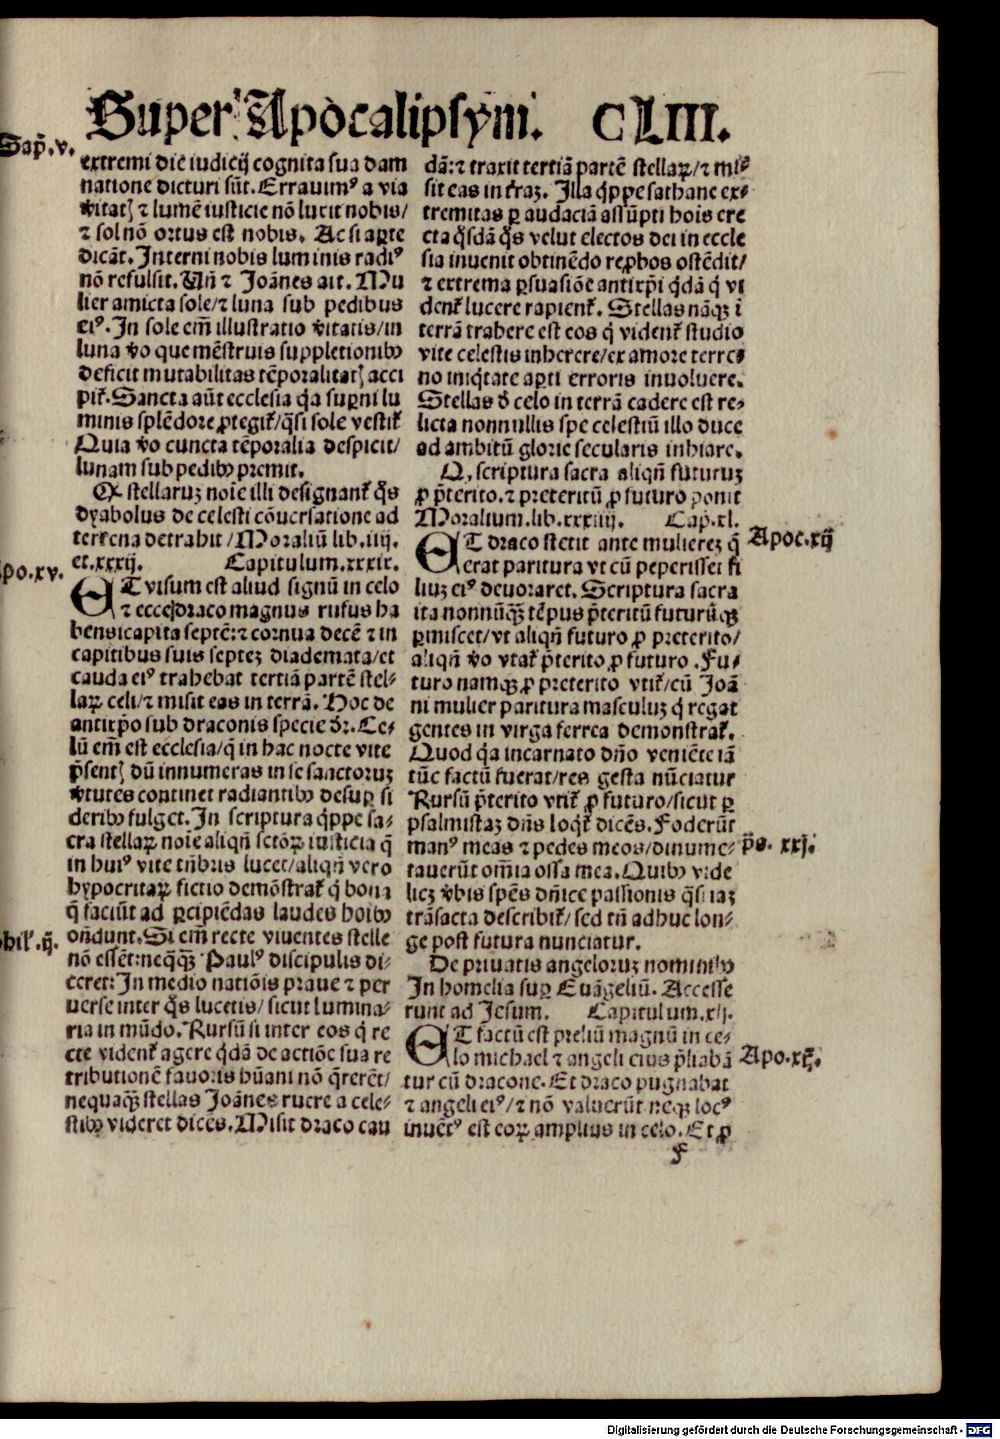 Super Apocalipsym. CLIII.
Sap̄.v.
extremi die iudicij cognita sua dam
natione dicturi sūt. Errauimꝰ a via
v̄itatꝭ ⁊ lumē iusticie nō lucit nobis/
⁊ sol nō ortus est nobis. Ac si aꝑte
dicāt. Interni nobis luminis radiꝰ
nō refulsit. Vn̄ ⁊ Joānes ait. Mu
lier amicta sole/⁊ luna sub pedibus
eiꝰ. In sole em̄ illustratio v̄itatis/in
luna v̄o que mēstruis suppletionibꝰ
deficit mutabilitas tēporalitatꝭ acci
pit᷑. Sancta aūt ecclesia q̇a suꝑni lu
minis splēdore ꝓtegit᷑/q̄si sole vestit᷑
Quia v̄o cuncta tēporalia despicit/
lunam sub pedibꝰ premit.
Ex stellaruꝫ noīe illi designant᷑ q̇s
dyabolus de celesti cōuersatione ad
terrena detrahit/Moraliū lib.iiij.
et.xxxij. Capitulum.xxxix.
po.xv.
ET visum est aliud signū in celo
⁊ ecce draco magnus rufus ha
bens capita septē:⁊ cornua decē ⁊ in
capitibus suis septeꝫ diademata/et
cauda eiꝰ trahebat tertiā partē stel⸗
laꝝ celi/⁊ misit eas in terrā. Hoc de
antixp̄o sub draconis specie dr̄. Ce⸗
lū em̄ est ecclesia/q̄ in hac nocte vite
p̄sentꝭ dū innumeras in se sanctoruꝫ
v̄tutes continet radiantibꝰ desuꝑ si
deribꝰ fulget. In scriptura q̇ppe sa⸗
cra stellaꝝ noīe aliqn̄ sctōꝝ iusticia q̇
in huiꝰ vite tn̄bris lucet/aliqn̄ vero
hypocritaꝝ fictio demōstrat᷑ q̇ bona
q̄ faciūt ad ꝑcipiēdas laudes hoībꝰ
on̄dunt. Si em̄ recte viuentes stelle
bil᷑.ij.
nō essēt:neqꝗꝫ Paulꝰ discipulis di⸗
ceret: In medio natiōis praue ⁊ per
uerse inter q̇s lucetis/sicut lumina⸗
ria in mūdo. Rursū si inter eos q̇ re
cte vident᷑ agere q̇dā de actiōe sua re
tributionē fauoris hūani nō q̄rerēt/
nequaꝗꝫ stellas Joānes ruere a cele⸗
stibꝰ videret dicēs. Misit draco cau
dā:⁊ traxit tertiā partē stellaꝝ/⁊ mi⸗
sit eas in fr̄aꝫ. Illa q̇ppe sathane ex⸗
tremitas ꝑ audaciā assūpti hoīs ere
cta q̇sdā q̇s velut electos dei in eccle
sia inuenit obtinēdo reꝓbos ostēdit/
⁊ extrema ꝑsuasiōe antixp̄i q̇dā q̇ vi
dent᷑ lucere rapient᷑. Stellas nāqꝫ ī
terrā trahere est eos q̇ vident᷑ studio
vite celestis inherere/ex amore terre⸗
no iniq̇tate aꝑti erroris inuoluere.
Stellas d̄ celo in terrā cadere est re⸗
licta nonnullis spe celestiū illo duce
ad ambitū glorie secularis inhiare.
Q, scriptura sacra aliqn̄ futuruꝫ
ꝓ p̄terito.⁊ preteritū ꝓ futuro ponit
Moralium.lib.xxxiiij. Cap̄.xl.
Apoc.xij
ET draco stetit ante muliereꝫ q̄
erat paritura vt cū peperisset fi
liuꝫ eiꝰ deuoraret. Scriptura sacra
ita nonnūꝗꝫ tēpus p̄teritū futurūqꝫ
ꝑmiscet/vt aliqn̄ futuro ꝓ preterito/
aliqn̄ v̄o vtat᷑ p̄terito ꝓ futuro. Fu⸗
turo namqꝫ ꝓ preterito vtit᷑/cū Joā
ni mulier paritura masculuꝫ q̇ regat
gentes in virga ferrea demonstrat᷑.
Quod q̇a incarnato dn̄o veniēte iā
tūc factū fuerat/res gesta nūciatur
Rursū p̄terito vtit᷑ ꝓ futuro/sicut ꝑ
psalmistaꝫ dn̄s loq̇t᷑ dicēs. Foderūt
p̄s. xxj.
manꝰ meas ⁊ pedes meos/dinume⸗
rauerūt om̄ia ossa mea. Quibꝰ vide
liceꝫ v̄bis spēs dn̄ice passionis q̄si iaꝫ
trāsacta describit᷑/sed tn̄ adhuc lon⸗
ge post futura nunciatur.
De priuatis angeloruꝫ nominibꝰ
In homelia suꝑ Euāgeliū. Accesse
runt ad Jesum. Capitulum.xlj.
Apo.xij.
ET factū est preliū magnū in ce⸗
lo michael ⁊ angeli eius p̄liabā
tur cū dracone. Et draco pugnabat
⁊ angeli eiꝰ/⁊ nō valuerūt neqꝫ locꝰ
inuētꝰ est eoꝝ amplius in celo. Et ꝓ
F
Digitalisierung gefördert durch die Deutsche Forschungsgemeinschaft - DFG